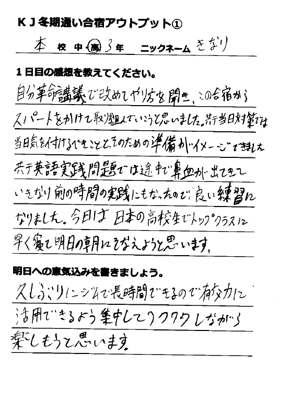 KJ冬期通い合宿アウトプット①
本校 中・高 3年 ニックネーム きなり
1日目の感想を教えてください。
自分革命講義で改めてやり方を聞き、この合宿から
スパートをかけて取り組んでいこうと思いました。共テ当日対策では
当日気を付けるべきこととそのための準備がイメージできました
共テ英語実践問題では途中で鼻血が出てきて
いきなり前の時間の実践にもなったので良い練習に
なりました。今日は日本の高校生でトップクラスに
早く寝て明日の朝にそなえようと思います。
明日への意気込みを書きましょう。
久しぶりにジムで長時間できるので有効に
活用できるよう集中してワクワクしながら
楽しもうと思います。